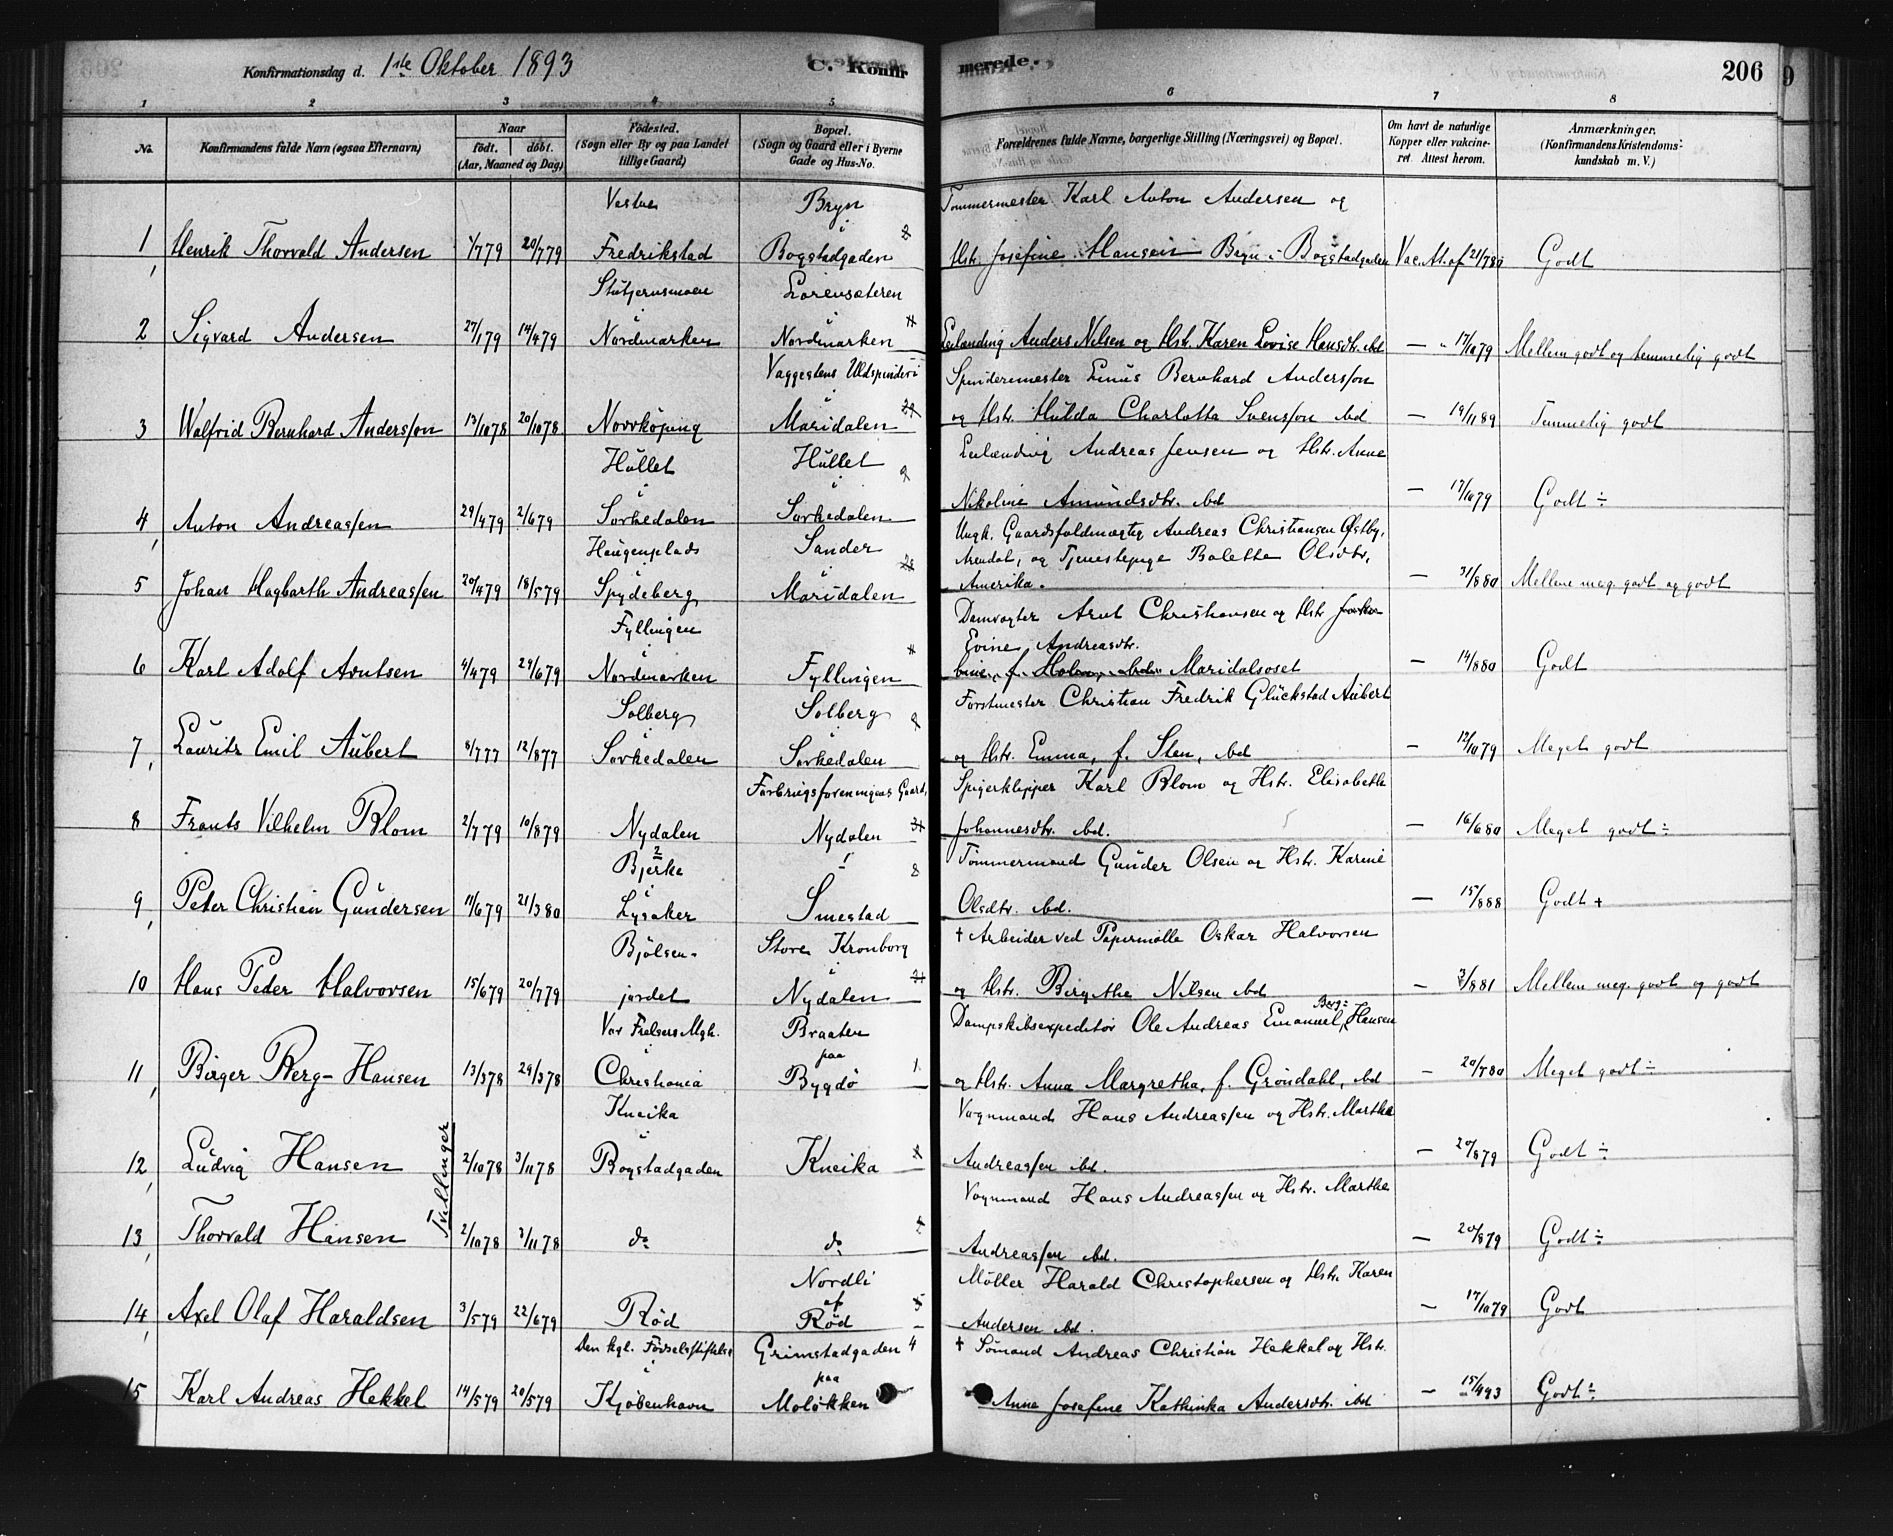 Konfirmationsdag d. 1ste Oktober 1893 C. Konfir merede. 206
1 2 3 4 5 6 7 8
No. Konfirmandens fulde Navn (ogsaa Efternavn) Naar født. døbt. (Aar, Maaned og Dag) Fødested. (Sogn eller By og paa Landet tillige Gaard) Bopæl. (Sogn og Gaard eller i Byerne Gade og Hus-No. Forældrenes fulde Navne, borgerlige Stilling (Næringsvei) og Bopæl. Om havt de naturlige Kopper eller vakcineret. Attest herom. Anmærkninger. (Konfirmandens Kristendomskundskab m. V.)
Vestre Bryn Tømmermester Karl Anton Andersen og
1 Henrik Thorvald Andersen 1/7 79 20/7 79 Fredrikstad i Bogstadgaden Hstr. Josefine Hansen Bryn i Bogstadgaden Vac. At. af 21/7 80 Godt
Lorensæteren
2 Sigvard Andersen 27/1 79 14/4 79 i Nordmarken i Nordmarken Leilænding Anders Nilsen og Hstr. Karen Lovise Hansdtr. ibd — 17/10 79 Mellem godt og temmelig godt
Vaggestens Uldspinderi Spindemester Linus Bernhard Andersson
3 Walfrid Bernhard Andersson 13/10 78 20/10 78 Norrköping i Maridalen og Hstr. Hulda Charlotta Svensson ibd — 19/11 89 Temmelig godt
Hullet Hullet Leilænding Andreas Jensen og Hstr. Anne
4 Anton Andreassen 29/4 79 2/6 79 i Sørkedalen i Sørkedalen Nikoline Amundsdtr. ibd — 17/10 79 Godt ÷
Haugenplads Sander Ungk. Gaardsfuldmægtig Andreas Christiansen Østby,
Arendal, og Tjenestepige Bolette Olsdtr,
5 Johan Hagbarth Andreassen 20/4 79 18/5 79 Spydeberg i Maridalen Amerika. — 31/8 80 Mellem meg. godt og godt
Fyllingen Damvogter Arnt Christiansen og Hstr
Evine Andreasdtr.
6 Karl Adolf Arntsen 4/4 79 29/6 79 i Nordmarken Fyllingen Maridalsoset — 14/8 80 Godt
Solberg Solberg Forstmester Christian Fredrik Glückstad Aubert
7 Lauritz Emil Aubert 8/7 77 12/8 77 Sørkedalen Sørkedalen og Hstr. Emma, f. Sten, ibd — 12/10 79 Meget godt
Forbrugsforeningens Gaard, Spigerklipper Karl Blom og Hstr. Elisabeth
8 Frants Vilhelm Blom 2/7 79 10/8 79 Nydalen Nydalen Johannesdtr. ibd. — 16/6 80 Meget godt ÷
Bjerke Tømmermand Gunder Olsen og Hstr. Karine
9 Peter Christian Gundersen 11/6 79 21/3 80 i Lysaker Smestad Olsdtr. ibd. — 15/8 88 Godt +
Bjølsen- Store Kronborg † Arbeider ved Papirmølle Oskar Halvorsen
10 Hans Peder Halvorsen 15/6 79 20/7 79 jordet i Nydalen og Hstr. Birgithe Nilsen ibd — 3/8 81 Mellem meg. godt og godt
Vor Frelsers Mgh. Braaten Dampskibsexpeditør Ole Andreas Emanuel Berg= Hansen
11 Birger Berg-Hansen 13/3 78 29/3 78 i Christiania paa Bygdø 1. og Hstr. Anna Margretha, f. Grøndahl, ibd — 20/7 80 Meget godt ÷
Kneika Vognmand Hans Andreassen og Hstr. Marthe
12 Ludvig Hansen 2/10 78 3/11 78 i Bogstadgaden Kneika Andreassen ibd. — 20/8 79 Godt ÷
Tvillinger
Vognmand Hans Andreassen og Hstr. Marthe
13 Thorvald Hansen 2/10 78 3/11 78 do do Andreassen ibd. — 20/8 79 Godt ÷
Nordli Møller Harald Christophersen og Hstr. Karen
14 Axel Olaf Haraldsen 3/5 79 22/6 79 Rød af Rød Andersen ibd. — 17/10 79 Godt
Den kgl. Fødselsstiftelse Grimstadgaden 4 † Sømand Andreas Christian Hekkel og Hstr.
15 Karl Andreas Hekkel 14/5 79 20/5 79 i Kjøbenhavn paa Moløkken Anne Josefine Kathinka Andersdtr. ibd — 15/4 93 Godt ÷